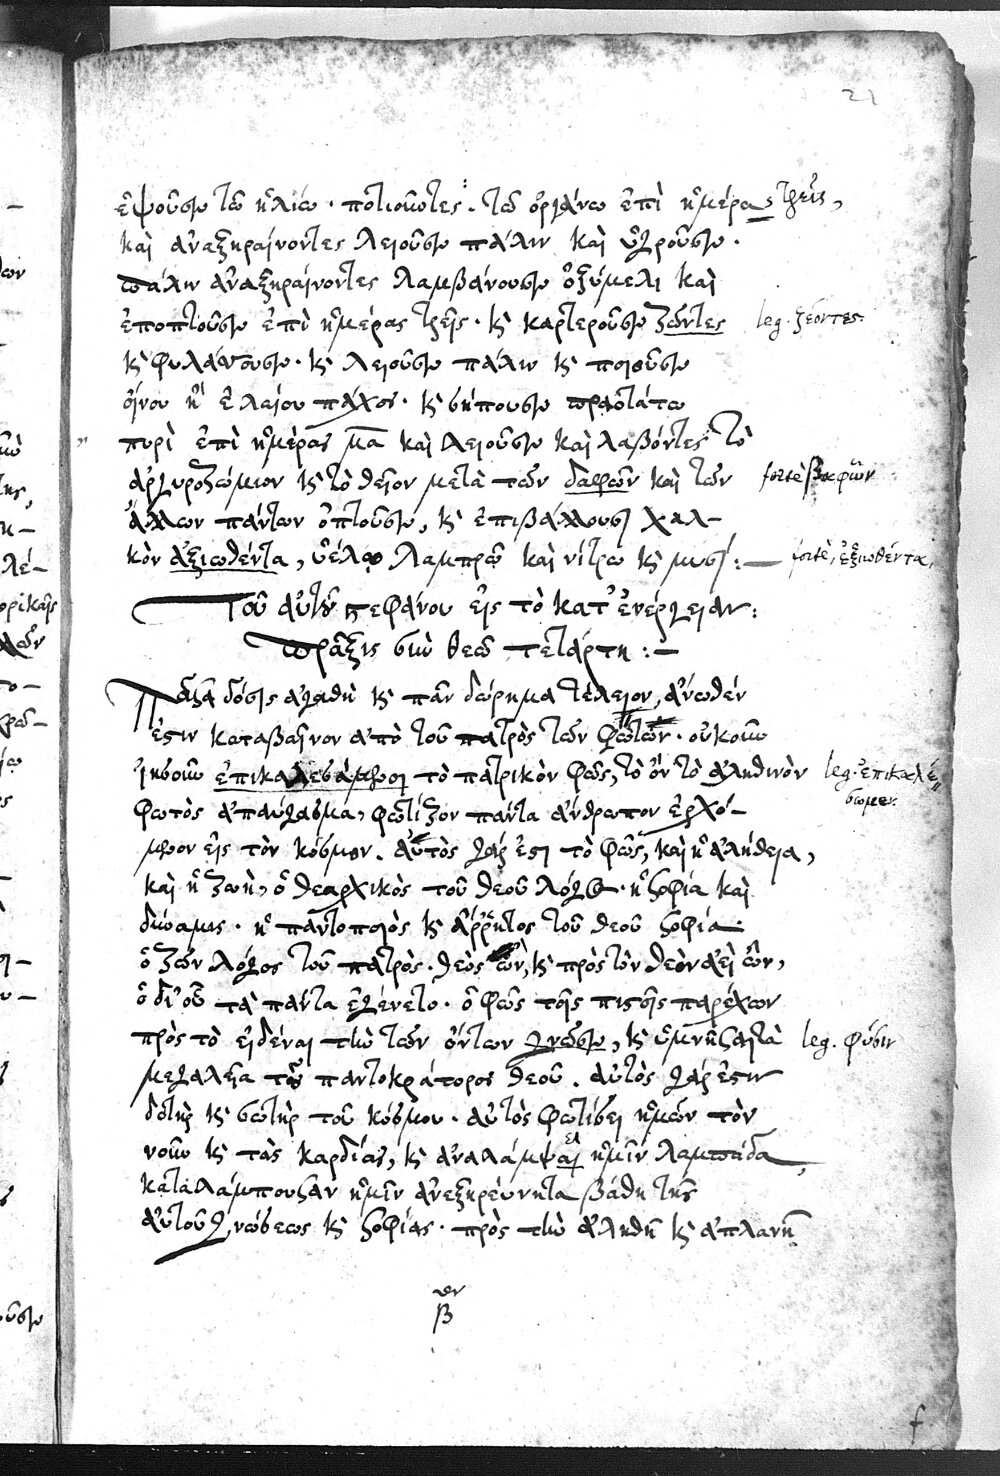 21
ἑψοῦσιν τῶ ἡλίω · ποτιοῦντες · τῶ ὀργάνω ἐπὶ ἡμέρας τρεῖς,
καὶ ἀναξηραίνοντες λειοῦσιν πάλιν καὶ ὑγροῦσιν ·
πάλιν ἀναξηραίνοντες λαμβάνουσιν ὀξύμελι καὶ
ἐποπτοῦσιν ἐπὶ ἡμέρας τρεῖς · κ καρτεροῦσιν ζῶντες leg. ζέοντες.
κ φυλάττουσιν · κ λειοῦσιν πάλιν κ ποιοῦσιν
οἴνου ἢ ἐλαίου πάχος · κ σήπουσιν πραοτάτω
πυρὶ ἐπὶ ἡμέρας μα καὶ λειοῦσιν καὶ λαβόντες τὸ
ἀργυροζώμιον κ τὸ θεῖον μετὰ τῶν δαφῶν καὶ τῶν fortè βαφῶν
ἄλλων πάντων ὀπτοῦσιν, κ ἐπιβάλλουσι χαλ-
κὸν ἀξιωθέντα, ὑέλω λαμπρῶ καὶ νίτρω κ μισυ : — fortè, ἐξιωθέντα,
Τοῦ αὐτοῦ στεφάνου εἰς τὸ κατ' ἐνέργειαν :
πρᾶξις σὺν θεῶ τετάρτη : —
Πᾶσα δόσις ἀγαθὴ κ πᾶν δώρημα τέλειον, ἄνωθέν
ἐστιν καταβαῖνον ἀπὸ τοῦ πατρὸς τῶν φώτων · οὐκοῦν
ἰησοῦν ἐπικαλεσάμενοι τὸ πατρικὸν φῶς, τὸ ὂν τὸ ἀληθινὸν leg. ἐπικαλέ-
σωμεν.
φωτὸς ἀπαύγασμα, φωτίζον πάντα ἄνθρωπον ἐρχό-
μενον εἰς τὸν κόσμον. αὐτὸς γάρ ἐστι τὸ φῶς, καὶ ἡ ἀλήθεια,
καὶ ἡ ζωὴ, ὁ θεαρχικὸς τοῦ θεοῦ λόγος · ἡ σοφία καὶ
δύναμις · ἡ παντοποιὸς κ ἄρρητος τοῦ θεοῦ σοφία ·
ὁ ζῶν λόγος τοῦ πατρὸς · θεὸς ὢν, κ πρὸς τὸν θεὸν ἀεὶ ὢν,
ὁ δι' οὗ τὰ πάντα ἐγένετο · ὁ φῶς τοῖς πιστοῖς παρέχων
πρὸς τὸ εἰδέναι τὴν τῶν ὄντων γνῶσιν, κ ὑμνῆσαι τὰ leg. φύσιν
μεγαλεῖα τοῦ παντοκράτορος θεοῦ. αὐτὸς γάρ ἐστιν
δοτὴρ κ σωτὴρ τοῦ κόσμου · αὐτὸς φωτίσει ἡμῶν τὸν
νοῦν κ τὰς καρδίας, κ ἀναλάμψαι ἡμῖν λαμπάδα,
καταλάμπουσαν ἡμῖν ἀνεξηρεύνητα βάθη τῆς
αὐτοῦ γνώσεως κ σοφίας · πρὸς τὴν ἀληθῆ κ ἀπλανῆ
β
f